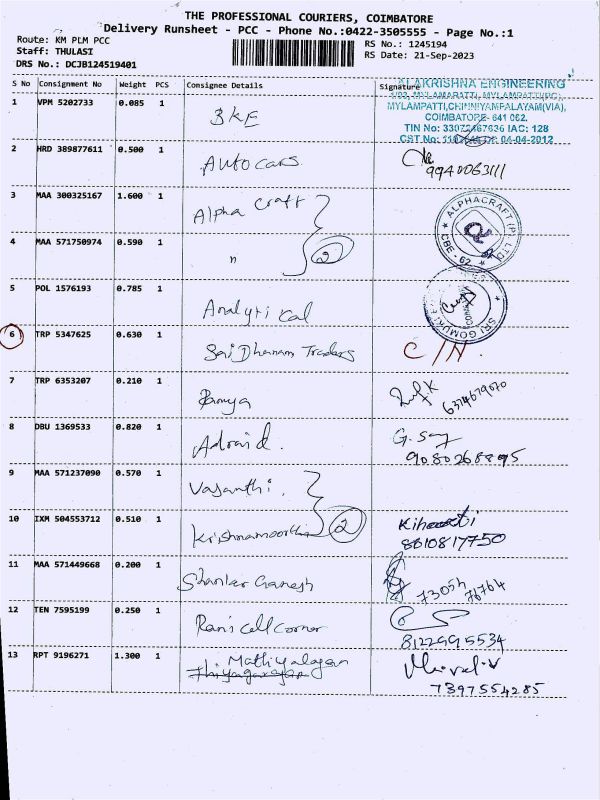 THE PROFESSIONAL COURIERS, COIMBATORE
Delivery Runsheet - PCC - Phone No.:0422-3505555 - Page No.:1
Route: KM PLM PCC
RS No.: 1245194
Staff: THULASI
RS Date: 21-Sep-2023
DRS No.: DCJB124519401
S No Consignment No Weight PCS Consignee Details Signature
ALAKRISHNA ENGINEERING
MYLAMPATTI,CHINNIYAMPALAYAM(VIA),
COIMBATORE- 641 062.
TIN No: 33072467636 IAC: 128
CST No: 04-04-2012
1 VPM 5202733 0.085 1 BKE
2 HRD 389877611 0.500 1 Auto cars 9940063111
3 MAA 300325167 1.600 1 Alpha Craft
ALPHACRAFT (P) LTD
CBE - 62
4 MAA 571750974 0.590 1 " 2
5 POL 1576193 0.785 1 Analytical
SRI GOMUKI
6 TRP 5347625 0.630 1 Sai Dhanam Traders C/N.
7 TRP 6353207 0.210 1 Ramya 6374679070
8 DBU 1369533 0.820 1 G. 9080268895
9 MAA 571237090 0.570 1 Vasanthi.
10 IXM 504553712 0.510 1 Krishnamoorthi 2 8610817750
11 MAA 571449668 0.200 1 Shankar Ganesh 73054 76764
12 TEN 7595199 0.250 1 Rani's Cell corner 8122995534
13 RPT 9196271 1.300 1 Mathiyalagan
Thiyagarajan 7397554285